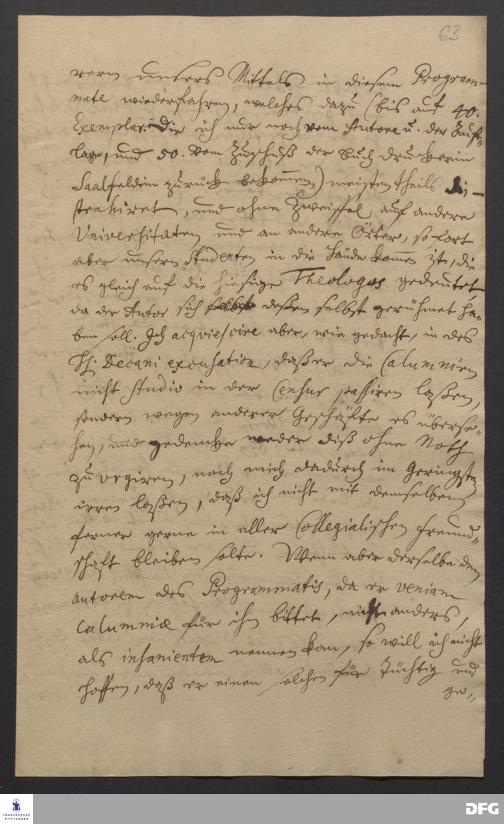 63
rern unsers Mittels in diesem Program-
mate wiederfahren, welches dazu (bis auf 40.
Exemplar. die ich nur noch vom Autore u. der Auf-
lage, und 50. vom Zuschuß der Buchdruckerin
Saalfeldin zurück bekommen,) meisten theils di-
strahiret, und ohne Zweiffel auf andere
Universitäten und an andere Örter, so fort
aber unsern Studenten in die Hände komen ist, die
es gleich auf die hiesige Theologos gedeutet
da der Autor sich deßen selbst gerühmet ha-
ben soll. Ich acquiescire aber, wie gedacht, in des
H. Decani excusation, daß er die Calumnien
nicht studio in der Censur passiren laßen,
sondern wegen anderer Geschäffte es überse-
hen, und gedencke weder diß ohne Noth
zu urgiren, noch mich dadurch im Geringsten
irren laßen, daß ich nicht mit demselben
ferner gerne in aller Collegialischen Freund-
schafft bleiben solte. Wenn aber derselbe den
Autorem des Programmatis, da er veniam
calumniæ für ihn bittet, nicht anders,
als insanientem nennen kan, so will ich nicht
hoffen, daß er einen solchen für tüchtig und
ge-
FRANCKESCHE
STIFTUNGEN
DFG